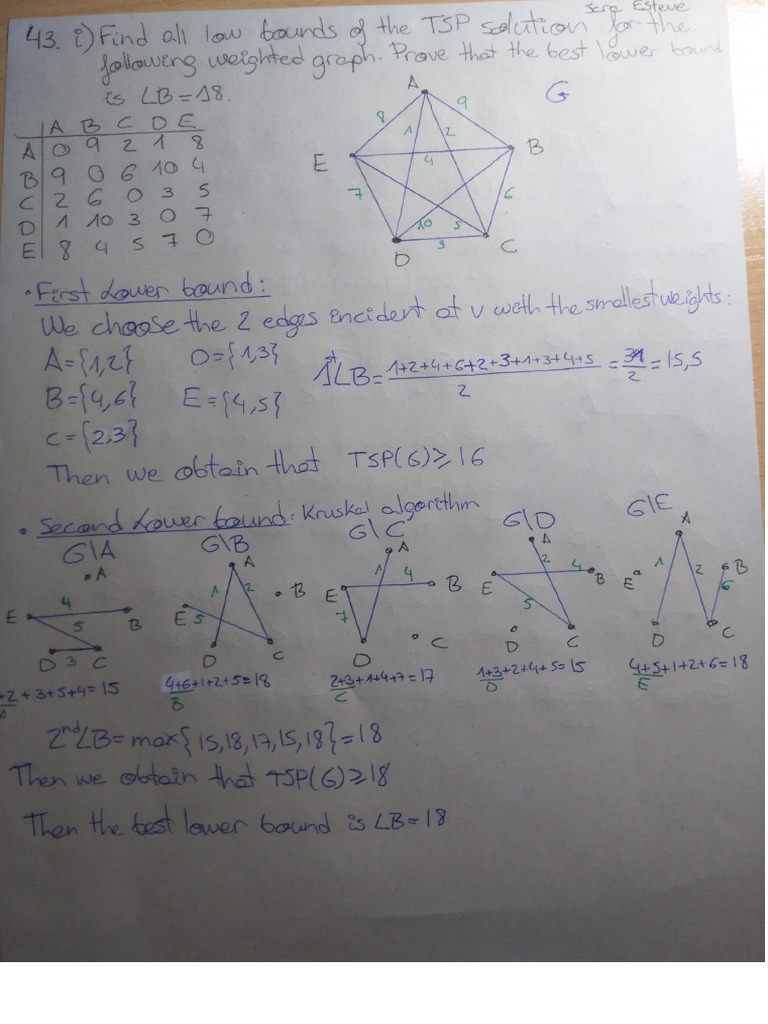 Sara Esteve
43. i) Find all low bounds of the TSP solution for the
following weighted graph. Prove that the best lower bound
is LB=18.
G
A B C D E
A 0 9 2 1 8
B 9 0 6 10 4
C 2 6 0 3 5
D 1 10 3 0 7
E 8 4 5 7 0
A
8 9
1 2
E 4 B
7 10 5 6
D 3 C
• First Lower bound:
We choose the 2 edges incident at v with the smallest weights:
A={1,2} D={1,3}
B={4,6} E={4,5}
C={2,3}
1st LB= 1+2+4+6+2+3+1+3+4+5 / 2 = 31/2 = 15,5
Then we obtain that TSP(G)≥16
• Second Lower bound: Kruskal algorithm
G\A G\B G\C G\D G\E
A A A A A
E 4 B 5 D 3 C
E 5 1 2 B D C
E 1 4 B 7 D C
E 2 4 B 5 D C
E 1 2 B 6 D C
+2+3+5+4=15
A
4+6+1+2+5=18
B
2+3+1+4+7=17
C
1+3+2+4+5=15
D
4+5+1+2+6=18
E
2nd LB=max{15,18,17,15,18}=18
Then we obtain that TSP(G)≥18
Then the best lower bound is LB=18